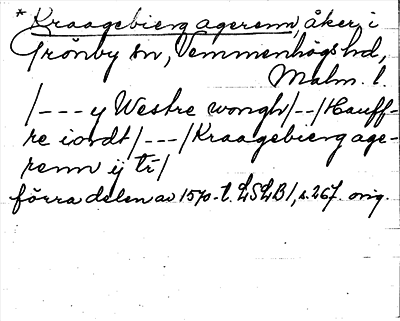 * Kraagebierg agerenn, åker, i
Grönby sn, Vemmenhögs hd,
Malm. l.
/---y Westre wongh/--/Hauff-
re iordt/---/Kraagebierg age-
renn ij tr/
förra delen av 1570-t. LSLB1, s. 267. orig.